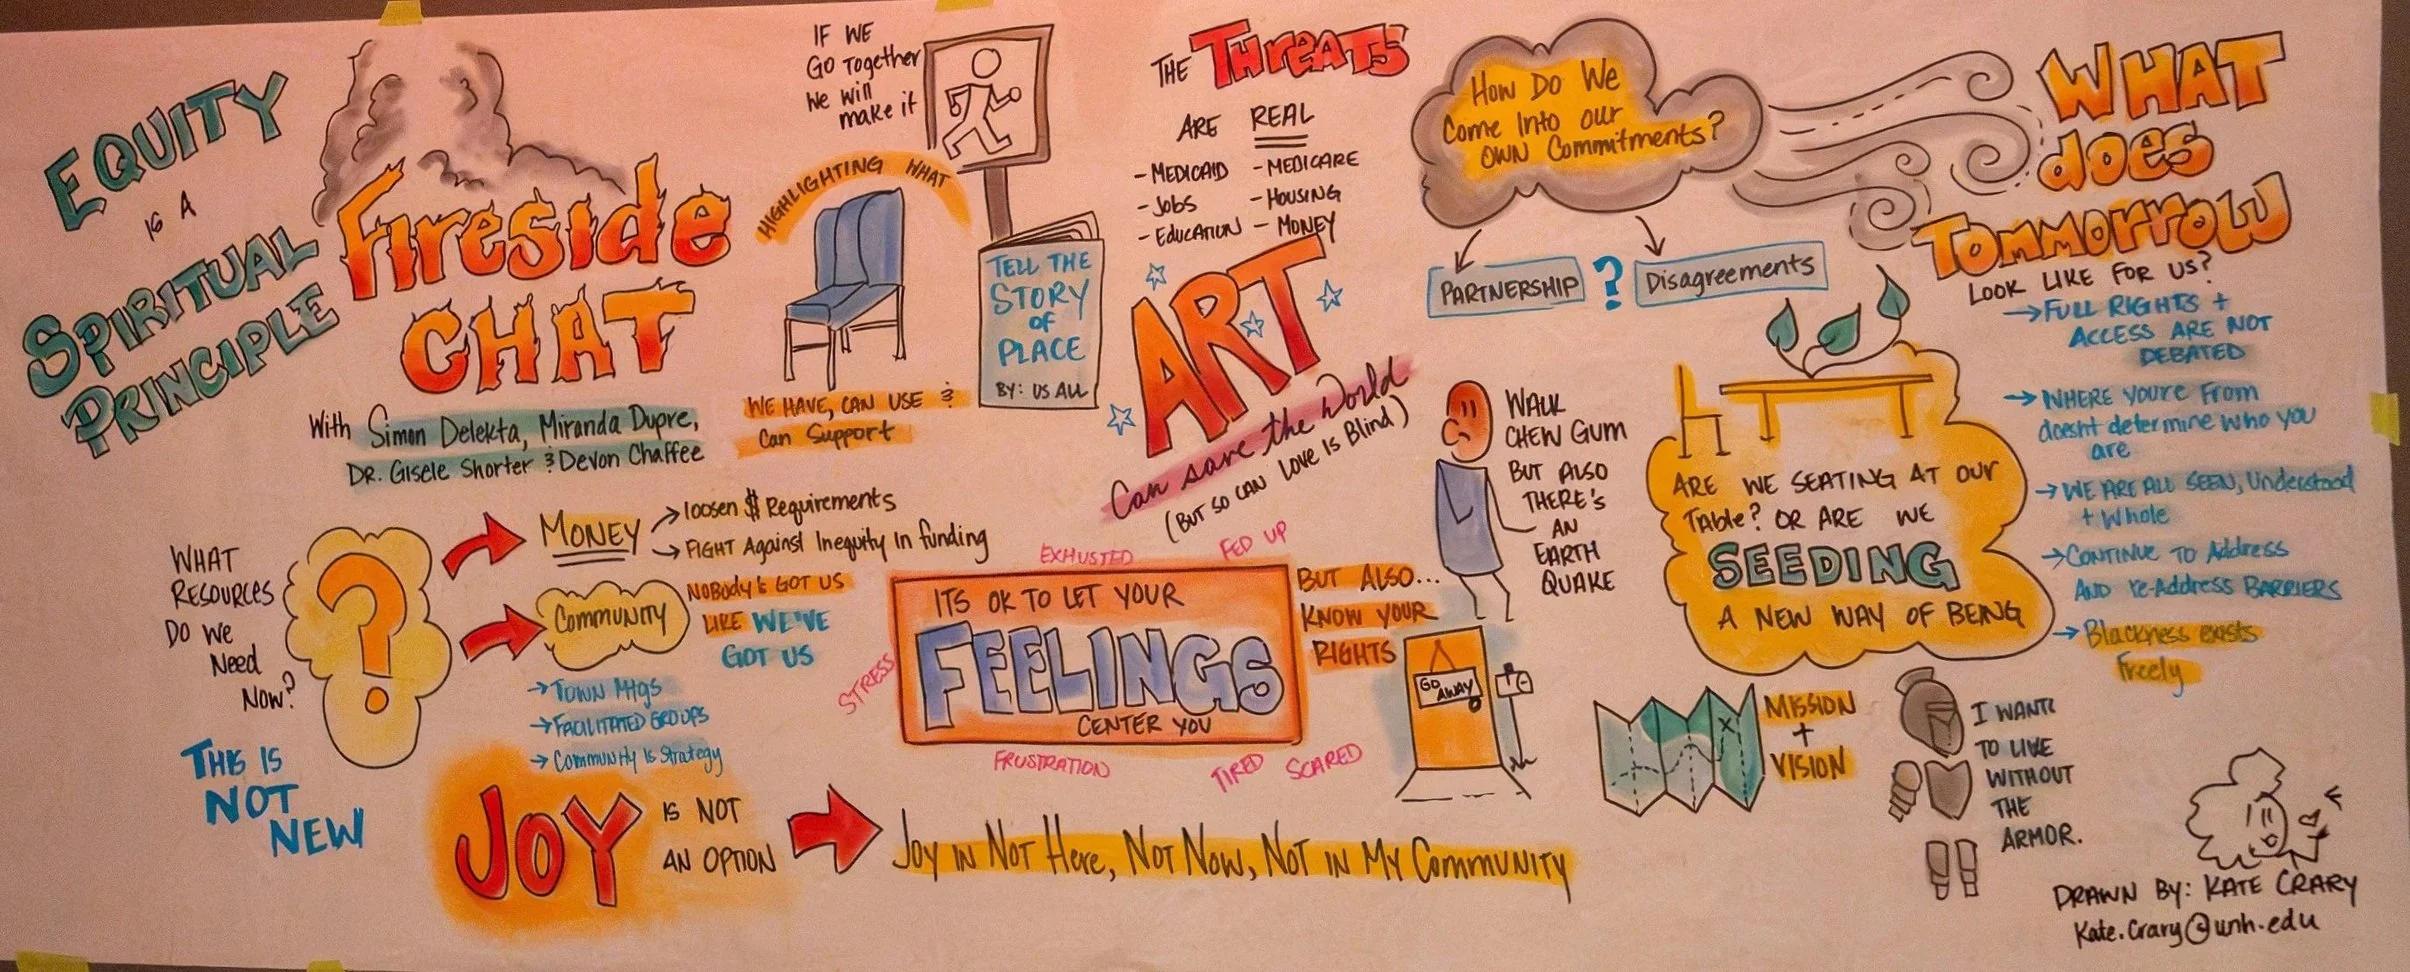 EQUITY
IS A
SPIRITUAL
PRINCIPLE
Fireside
CHAT
With Simon Delekta, Miranda Dupre,
DR. Gisele Shorter & Devon Chaffee
IF WE
GO Together
We will
make it
HIGHLIGHTING WHAT
WE HAVE, CAN USE &
Can Support
TELL THE
STORY
OF
PLACE
BY: US ALL
THE THREATS
ARE REAL
- MEDICAID - MEDICARE
- JOBS - HOUSING
- EDUCATION - MONEY
ART
Can save the World
(BUT SO CAN LOVE IS Blind)
How Do We
Come Into our
OWN Commitments?
PARTNERSHIP ? Disagreements
WHAT
does
TOMMORROW
LOOK LIKE FOR US?
→ FULL RIGHTS +
ACCESS ARE NOT
DEBATED
→ WHERE YOU'RE From
doesn't determine who you
are
→ WE ARE ALL SEEN, Understood
+ Whole
→ CONTINUE TO Address
AND re-Address BARRIERS
→ Blackness exists
Freely
WALK
CHEW GUM
BUT ALSO
THERE'S
AN
EARTH
QUAKE
ARE WE SEATING AT OUR
Table? OR ARE WE
SEEDING
A NEW WAY OF BEING
WHAT
RESOURCES
DO WE
Need
NOW?
?
THIS IS
NOT
NEW
MONEY
→ loosen $ Requirements
→ FIGHT Against Inequity In funding
Community
NOBODY'S GOT US
LIKE WE'VE
GOT US
→ TOWN Mtgs
→ FACILITATED GROUPS
→ Community Is Strategy
EXHUSTED
FED UP
STRESS
ITS OK TO LET YOUR
FEELINGS
CENTER YOU
FRUSTRATION
TIRED
SCARED
BUT ALSO...
KNOW YOUR
RIGHTS
GO
AWAY
MISSION
+
VISION
I WANT
TO LIVE
WITHOUT
THE
ARMOR.
JOY
IS NOT
AN OPTION
Joy in Not Here, Not Now, Not in My Community
DRAWN BY: KATE CRARY
Kate.Crary@unh.edu